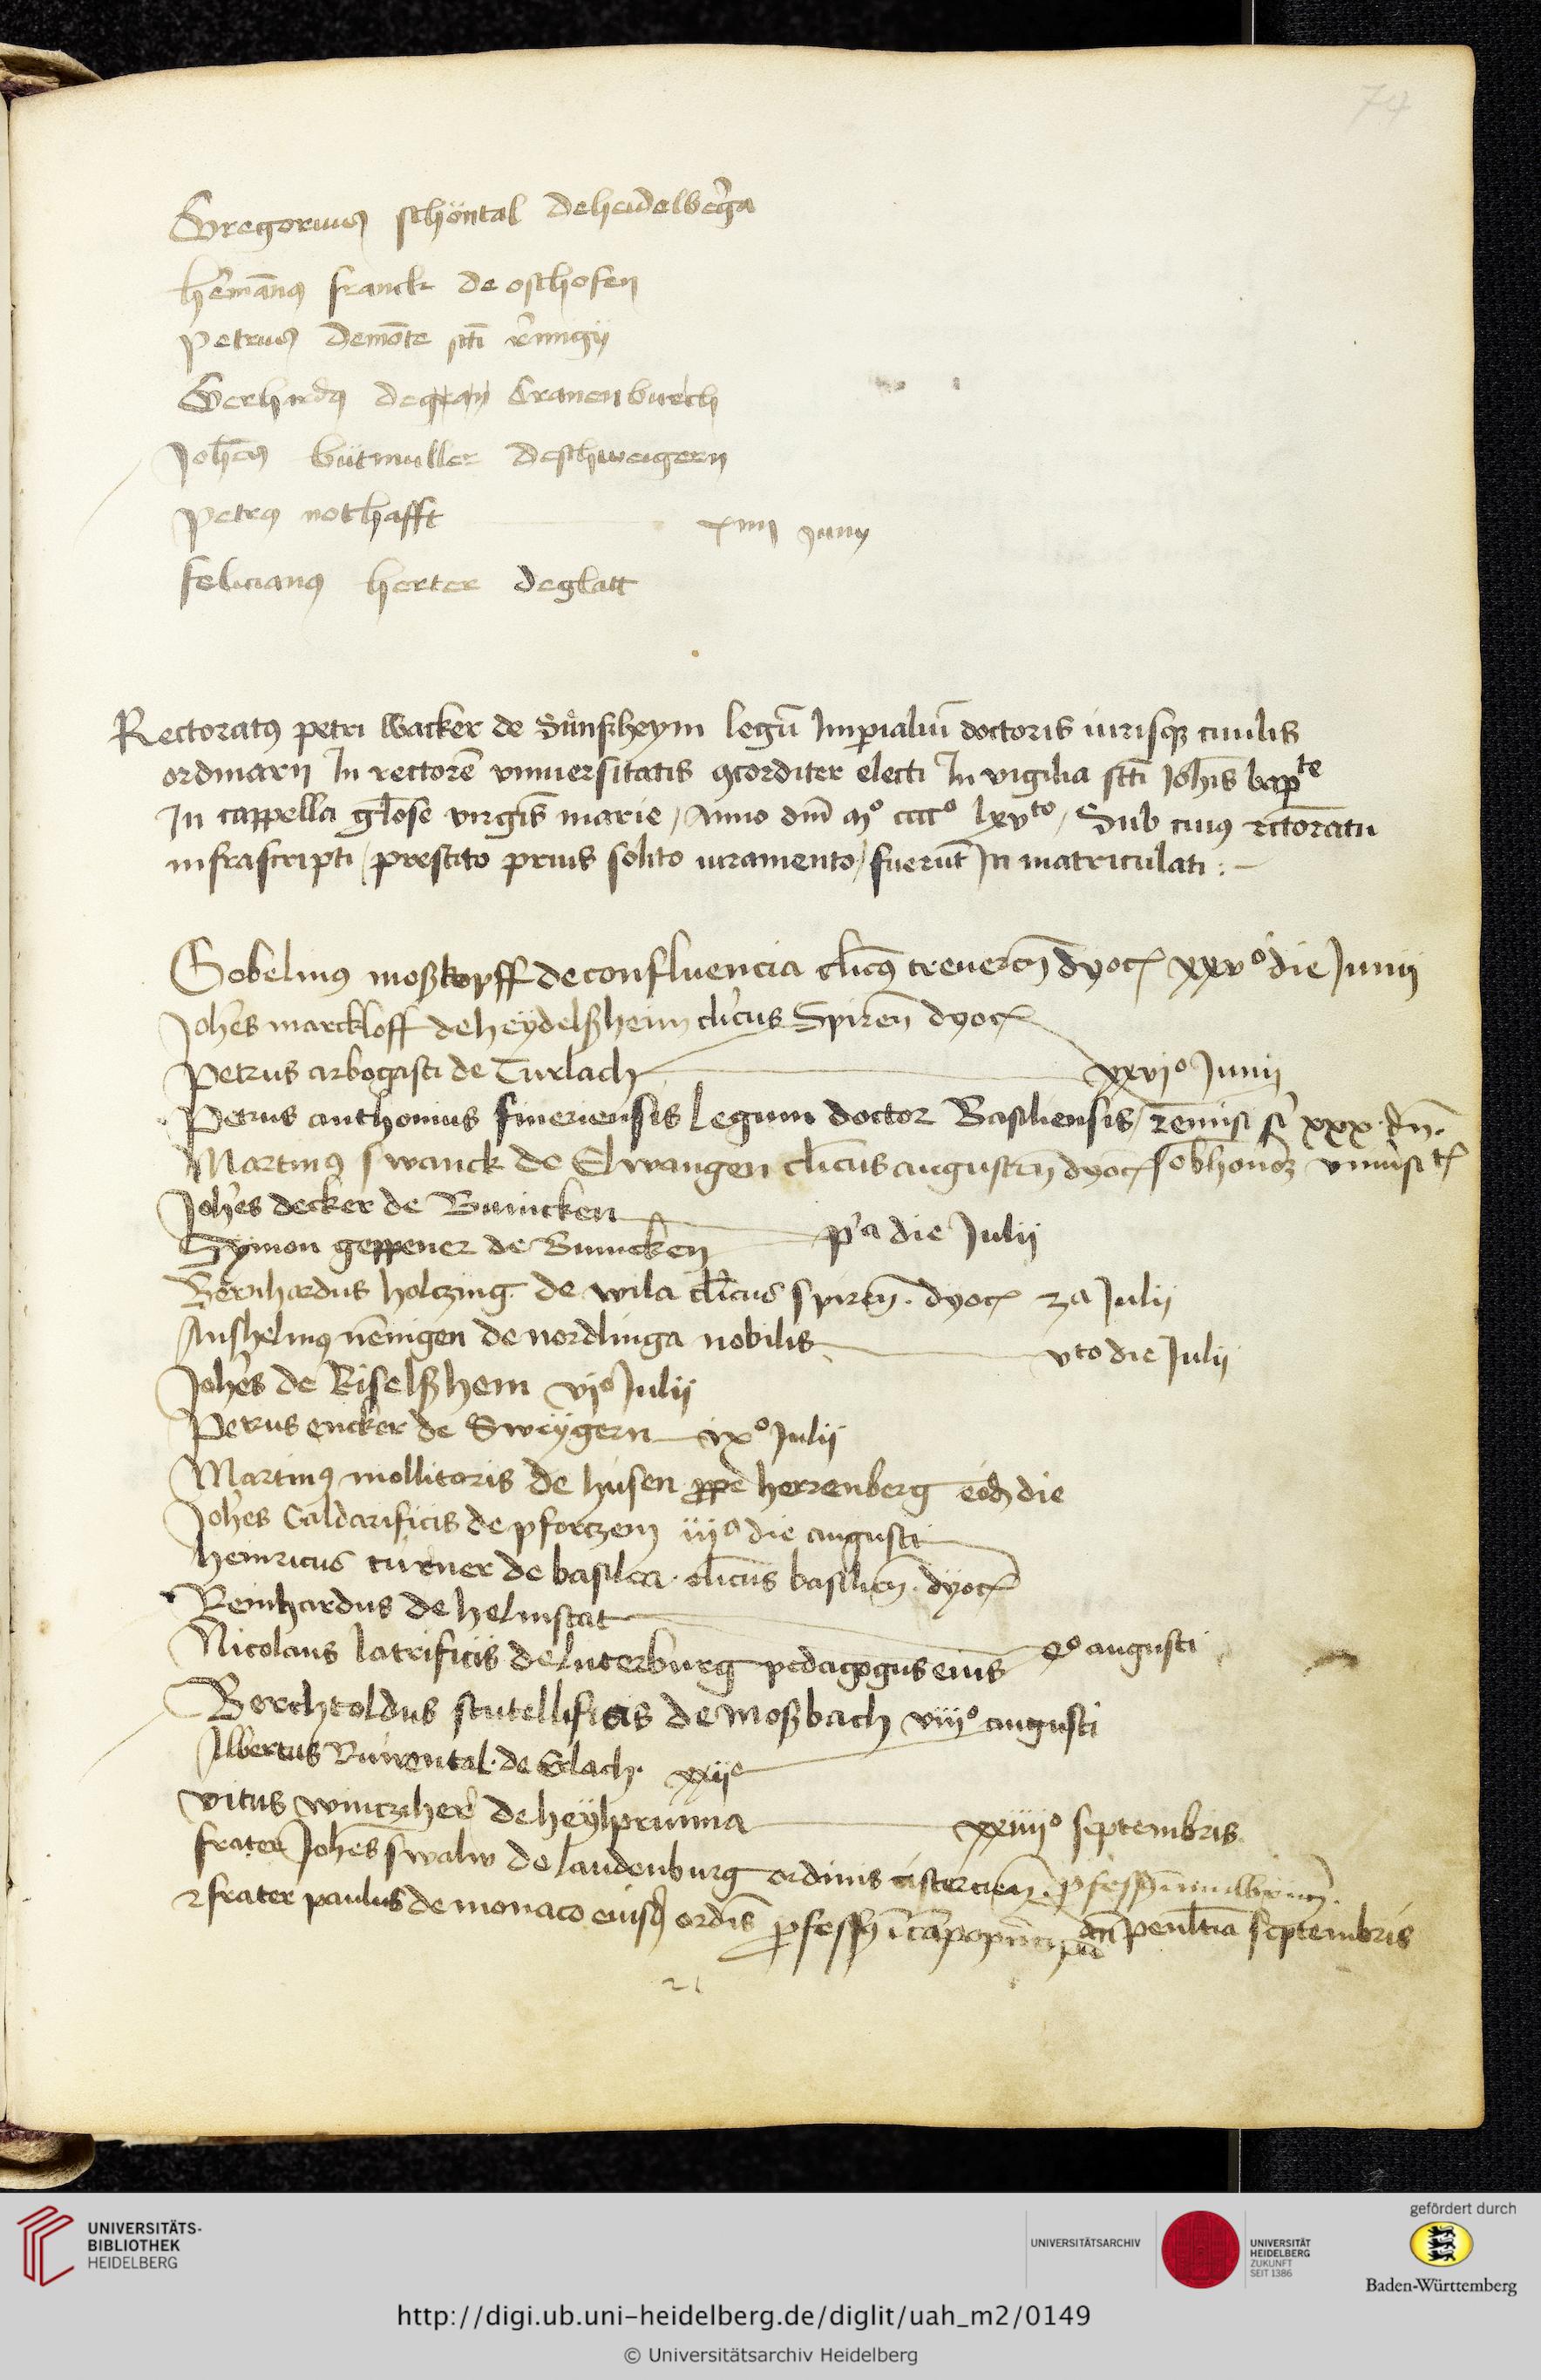 74
Gregorius schöntal de heidelberga
hermānus franck de osthofen
petrus de mōte scti remigij
Gerhardus de Cranenburch
Joh̄es bütmuller de schweigern
petrus nothafft xiiij Junij
felicianus herter de glatt
Rectoratus petri wacker de Sünßheym legū Imperialiū doctoris iurisque ciuilis
ordinarij In rectorē vniuersitatis concorditer electi In vigilia scti Johis bapte
In cappella gloīse virgīs marie / Anno dnī mo cccco lxvto / Sub cuius rectoratu
infrascripti / prestito prius solito iuramento / fuerūt In matriculati :-
Gobelinus moßkopff de confluencia clīcus treuereñ dyoc xxvo die Junij
Joh̄es marckloff de heÿdelßheim clīcus Spireñ dyoc
Petrus arbogasti de Turlach xxvjo Junij
Petrus anthonius fineriensis legum doctor Basiliensis / remisi xxx dñ.
Martinus swanck de Elwangen clīcus augusteñ dyoc ob honorem vniuersitatis
Joh̄es decker de Bunicken
Symon geppener de Bunicken pa die Julij
Bernhardus holczing de wila clīcus spireñ. dyoc 3a Julij
Anshelmus nēnigen de nordlinga nobilis vto die Julij
Joh̄es de Riselßhem vjo Julij
Petrus encker de Sweÿgern ixo Julij
Martinus mollitoris de husen prope herrenberg eodem die
Joh̄es Caldarificis de pforczem iijo die augusti
heinricus turner de basilea. clīcus basilieñ. dÿoc
Reinhardus de helmstat
Nicolaus latrificis de luterburg pedagogus eius augusti
Berchtoldus scutellificis de moßbach viijo augusti
Albertus Ruwental. de Elach. xxijo
vitus winczher de heÿlprunna xxiiijo septembris
frater Joh̄es swalw de laudenburg ordinis cistercieñ. professus
frater paulus de monaco eiusdem ordīs professus penltīa septembris
UNIVERSITÄTS-
BIBLIOTHEK
HEIDELBERG
UNIVERSITÄTSARCHIV
UNIVERSITÄT
HEIDELBERG
ZUKUNFT
SEIT 1386
gefördert durch
Baden-Württemberg
http://digi.ub.uni-heidelberg.de/diglit/uah_m2/0149
© Universitätsarchiv Heidelberg